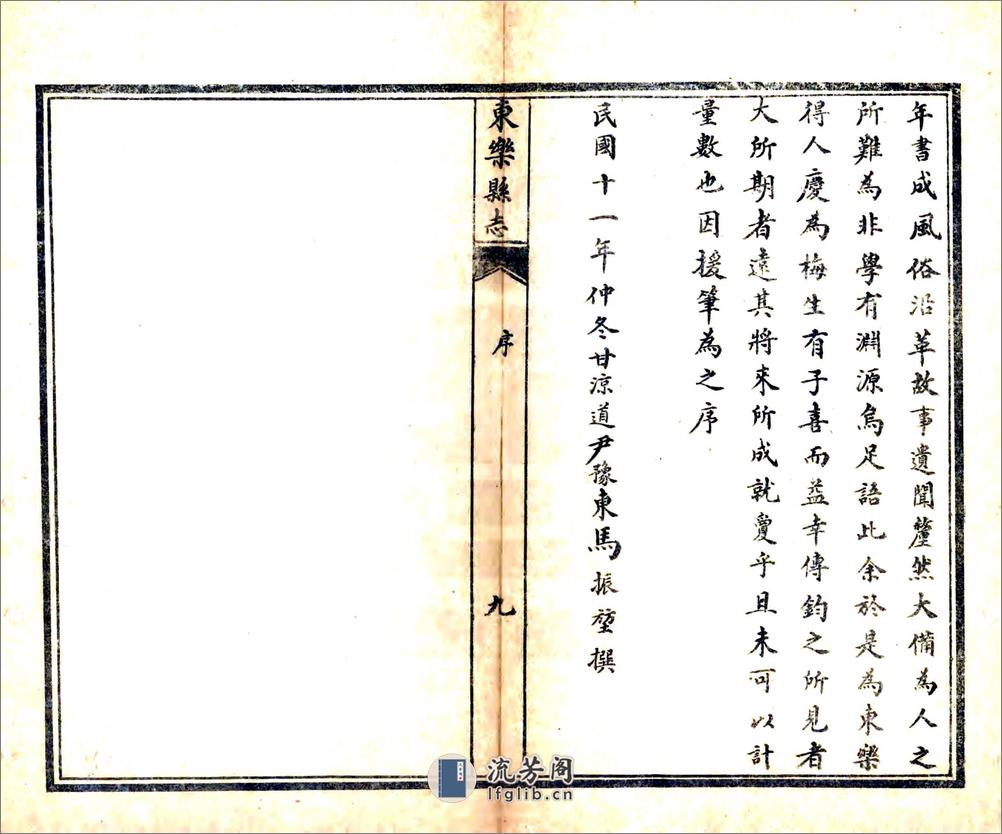 年書成風俗沿革故事遺聞釐然大備為人之
所難為非學有淵源烏足語此余於是為東樂
得人慶為梅生有子喜而益幸傳鈞之所見者
大所期者遠其將來所成就敻乎且未可以計
量數也因援筆為之序
民國十一年仲冬甘涼道尹豫東馬振撰
東樂縣志
序
九
流芳阁
lfglib.cn